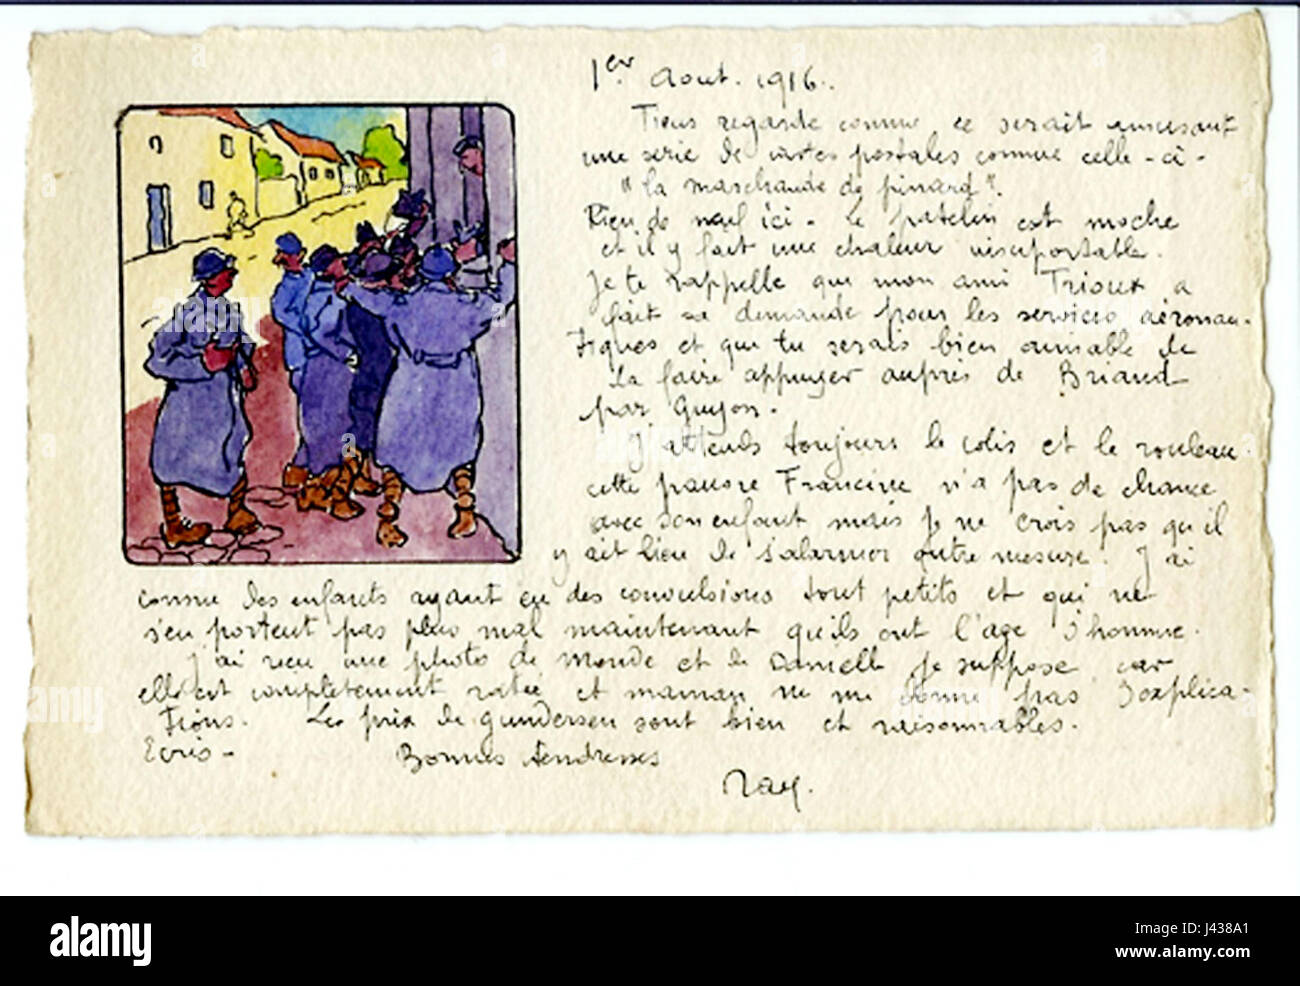 1er Aout. 1916.
Tiens regarde comme ce serait amusant
une serie de cartes postales comme celle-ci -
"la marchande de pinard".
Rien de neuf ici - Le patelin est moche
et il y fait une chaleur insuportable.
Je te rappelle que mon ami Trioux a
fait sa demande pour les services aéronau-
tiques et que tu serais bien aimable de
la faire appuyer auprès de Briand
par Guyon.
J'attends toujours le colis et le rouleau.
cette pauvre Francine n'a pas de chance
avec son enfant mais je ne crois pas qu'il
y ait lieu de s'alarmer outre mesure. J'ai
connu des enfants ayant eu des convulsions tout petits et qui ne
s'en portent pas plus mal maintenant qu'ils ont l'age d'homme.
J'ai reçu une photo de Monde et de Danielle je suppose car
elle est completement ratée et maman ne me donne pas d'explica-
tions. Les prix de gundersen sont bien et raisonnables.
Ecris - Bonnes tendresses
Ray.
alamy
Image ID: J438A1
www.alamy.com